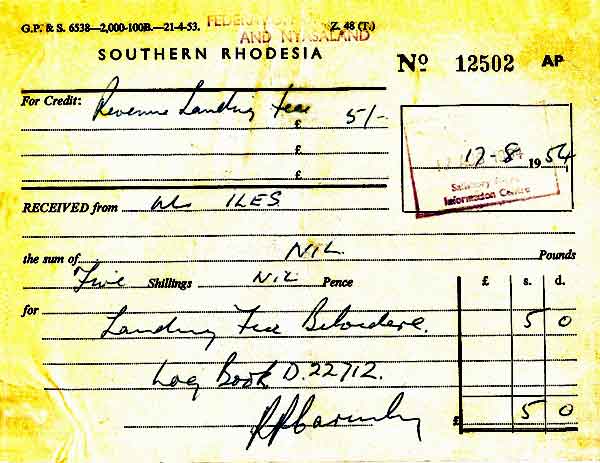 G.P. & S. 6538—2,000-100B.—21-4-53. Z. 48 (T.)
FEDERATION OF
AND NYASALAND
SOUTHERN RHODESIA
Nº 12502 AP
For Credit: Revenue Landing Fees
£ 5/-
£
£
17-8 1954
Information Centre
RECEIVED from Mr ILES.
the sum of NIL. Pounds
Five Shillings NIL Pence
£ s. d.
for Landing Fee Belvedere. 5 0
Log Book D.22712.
£ 5 0